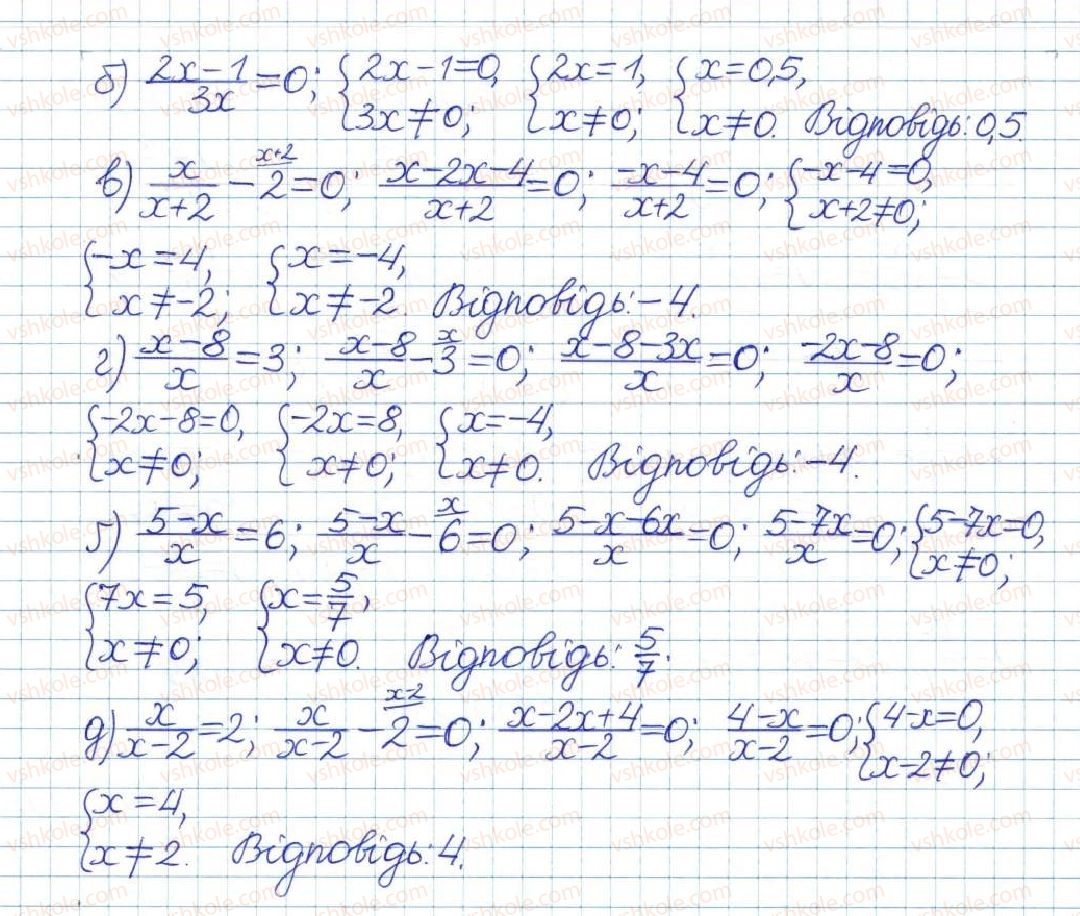 б) (2x-1)/(3x) = 0; { 2x-1=0, 3x≠0; { 2x=1, x≠0; { x=0,5, x≠0. Відповідь: 0,5.
в) x/(x+2) - 2^(x+2) = 0; (x-2x-4)/(x+2) = 0; (-x-4)/(x+2) = 0; { -x-4=0, x+2≠0;
{ -x=4, x≠-2; { x=-4, x≠-2. Відповідь: -4.
г) (x-8)/x = 3; (x-8)/x - 3^(x) = 0; (x-8-3x)/x = 0; (-2x-8)/x = 0;
{ -2x-8=0, x≠0; { -2x=8, x≠0; { x=-4, x≠0. Відповідь: -4.
ґ) (5-x)/x = 6; (5-x)/x - 6^(x) = 0; (5-x-6x)/x = 0; (5-7x)/x = 0; { 5-7x=0, x≠0;
{ 7x=5, x≠0; { x=5/7, x≠0. Відповідь: 5/7.
д) x/(x-2) = 2; x/(x-2) - 2^(x-2) = 0; (x-2x+4)/(x-2) = 0; (4-x)/(x-2) = 0; { 4-x=0, x-2≠0;
{ x=4, x≠2. Відповідь: 4.
vshkole.com